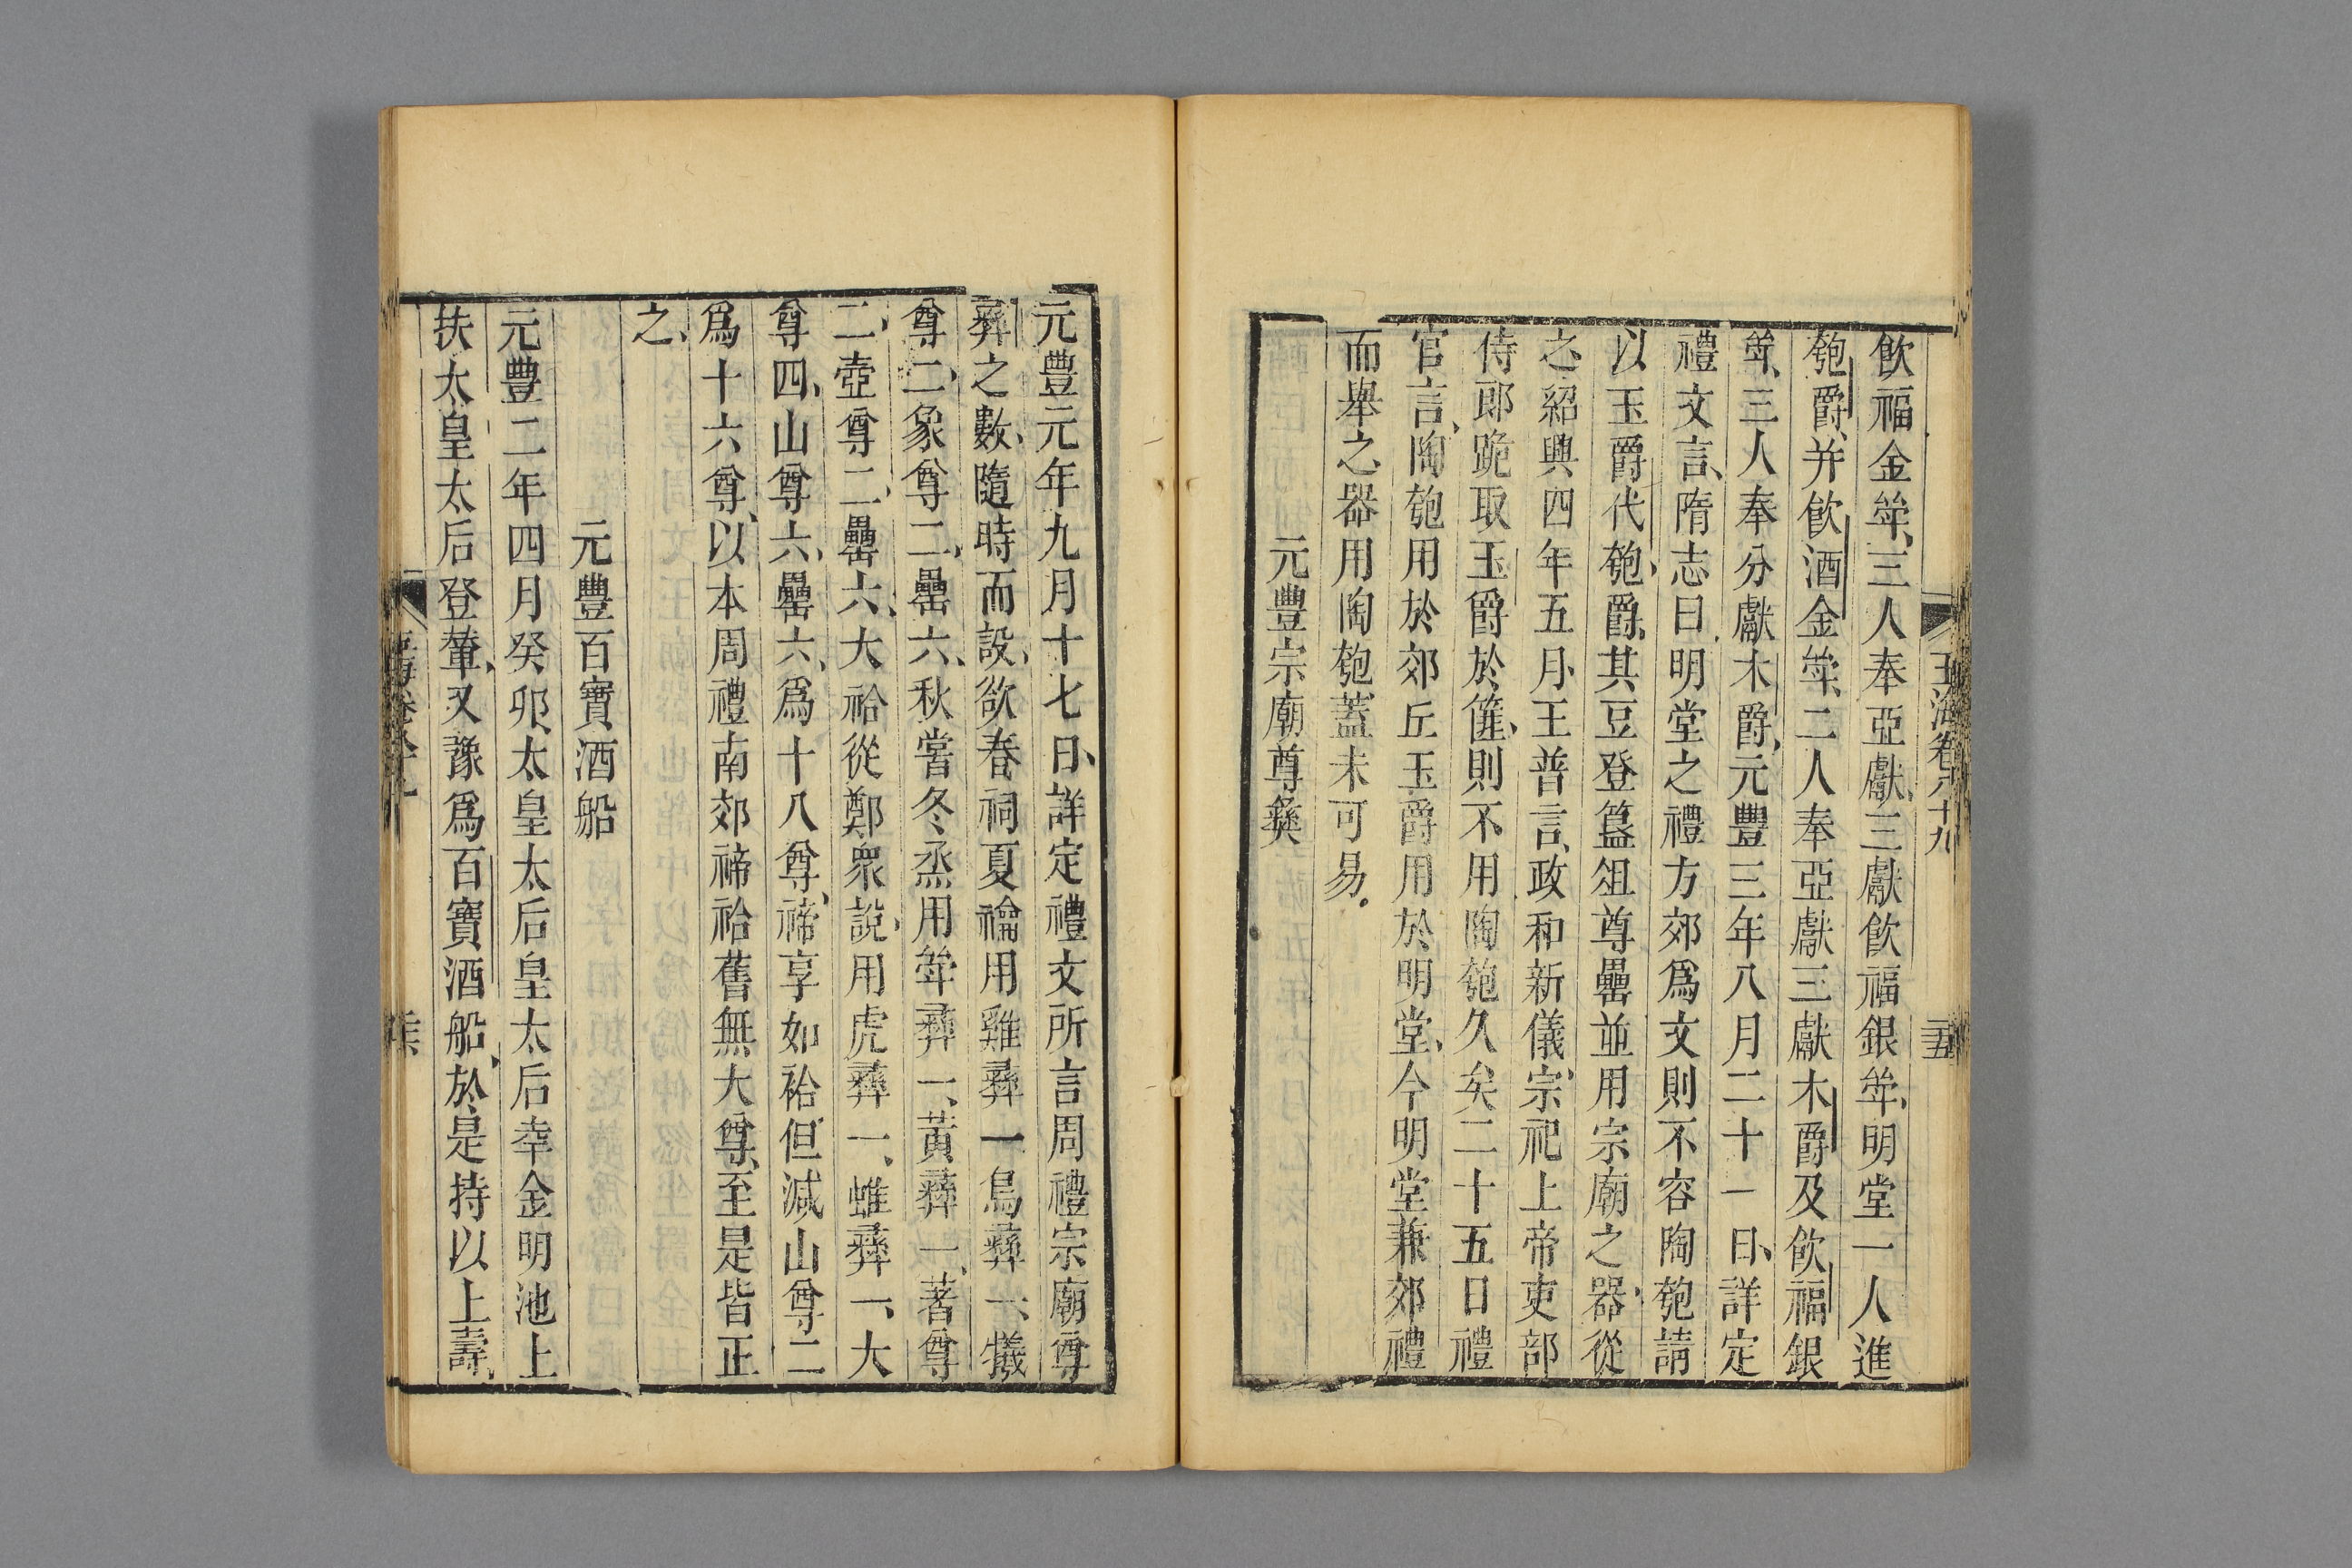 玉海卷八十九
三五
飲福金斝三人奉亞獻三獻飲福銀斝明堂一人進
匏爵并飲酒金斝二人奉亞獻三獻木爵及飲福銀
斝三人奉分獻木爵元豐三年八月二十一日詳定
禮文言隋志曰明堂之禮方郊爲文則不容陶匏請
以玉爵代匏爵其豆登簋俎尊罍並用宗廟之器從
之紹興四年五月王普言政和新儀宗祀上帝吏部
侍郎跪取玉爵於篚則不用陶匏久矣二十五日禮
官言陶匏用於郊丘玉爵用於明堂今明堂兼郊禮
而舉之器用陶匏蓋未可易
元豐宗廟尊彝
元豐元年九月十七日詳定禮文所言周禮宗廟尊
彝之數隨時而設欲春祠夏禴用雞彝一鳥彝一犧
尊二象尊二罍六秋嘗冬烝用斝彝一黃彝一著尊
二壺尊二罍六大祫從鄭衆說用虎彝一蜼彝一大
尊四山尊六罍六爲十八尊禘享如祫但減山尊二
爲十六尊以本周禮南郊禘祫舊無大尊至是皆正
之
元豐百寶酒船
元豐二年四月癸卯太皇太后皇太后幸金明池上
扶太皇太后登輦又豫爲百寶酒船於是持以上壽